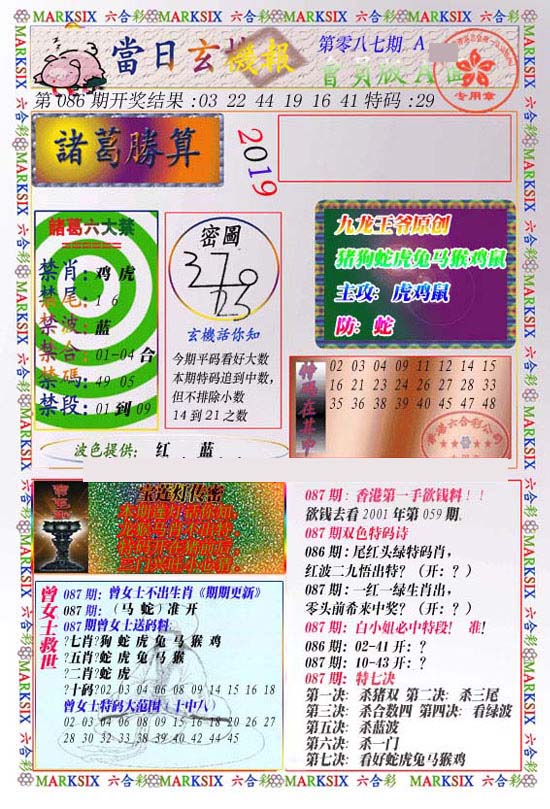 MARKSIX 六合彩 MARKSIX 六合彩 MARKSIX 六合彩 MARKSIX 六合彩
當日玄機報
第零八七期 A
會員版A
专用章
第086期开奖结果:03 22 44 19 16 41特码:29
諸葛勝算
2019
諸葛六大禁
禁肖:鸡虎
禁尾:1 6
禁波:蓝
禁合:01-04合
禁碼:49 05
禁段:01到09
密圖
玄機話你知
今期平码看好大数
本期特码追到中数,
但不排除小数
14到21之数
九龙王爷原创
猪狗蛇虎兔马猴鸡鼠
主攻:虎鸡鼠
防:蛇
特碼在其中
02 03 04 09 11 12 14 15
16 21 23 24 26 27 28 33
35 36 38 39 40 45 47 48
波色提供: 红 蓝
宝莲灯传密
087期:香港第一手欲钱料!!
欲钱去看2001年第059期.
087期双色特码诗
086期:尾红头绿特码肖,
红波二九悟出特?(开:?)
087期:一红一绿生肖出,
零头前希来中奖?(开:?)
087期:白小姐必中特段! 准!
086期:02-41开:?
087期:10-43开:?
087期:特七决
第一决:杀猪双 第二决:杀三尾
第三决:杀合数四 第四决:看绿波
第五决:杀蓝波
第六决:杀一门
第七决:看好蛇虎兔马猴鸡
曾女士救世
087期:曾女士不出生肖《期期更新》
087期:(马 蛇)准开
087期曾女士送码料:
?七肖?狗 蛇 虎 兔 马 猴 鸡
?五肖?蛇 虎 兔 马 猴
?二肖?蛇 虎
?十码?02 03 04 06 08 09 14 15 16 18
曾女士特码大范围(十中八)
02 03 04 06 08 09 15 16 18 20 26 27
28 30 32 33 38 39 40 42 44 45
MARKSIX 六合彩 MARKSIX 六合彩 MARKSIX 六合彩 MARKSIX 六合彩